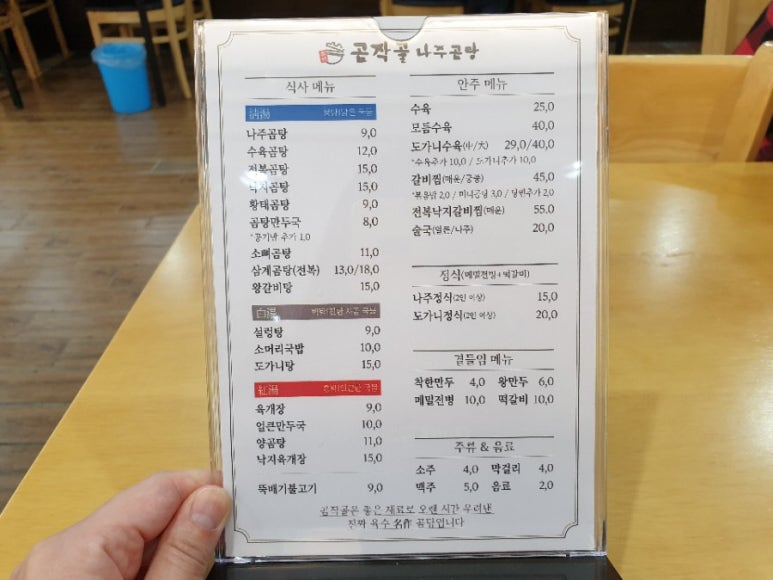 곰작골 나주곰탕
식사 메뉴
清湯 청탕(맑은 국물)
나주곰탕 9,0
수육곰탕 12,0
전복곰탕 15,0
낙지곰탕 15,0
황태곰탕 9,0
곰탕만두국 8,0
*공기밥 추가 1,0
소뼈곰탕 11,0
삼계곰탕(전복) 13,0/18,0
왕갈비탕 15,0
白湯 백탕(진한 사골 국물)
설렁탕 9,0
소머리국밥 10,0
도가니탕 15,0
紅湯 홍탕(얼큰한 국물)
육개장 9,0
얼큰만두국 10,0
양곰탕 11,0
낙지육개장 15,0
뚝배기불고기 9,0
안주 메뉴
수육 25,0
모듬수육 40,0
도가니수육(中/大) 29,0/40,0
*수육추가 10,0 / 도가니추가 10,0
갈비찜(매운/궁중) 45,0
*볶음밥 2,0 / 미니공밥 3,0 / 당면추가 2,0
전복낙지갈비찜(매운) 55.0
술국(얼큰/나주) 20,0
정식(메밀전병+떡갈비)
나주정식(2인 이상) 15,0
도가니정식(2인 이상) 20,0
곁들임 메뉴
착한만두 4,0 왕만두 6,0
메밀전병 10,0 떡갈비 10,0
주류 & 음료
소주 4,0 막걸리 4,0
맥주 5,0 음료 2,0
곰작골은 좋은 재료로 오랜 시간 우려낸
진짜 육수 名作 곰탕입니다